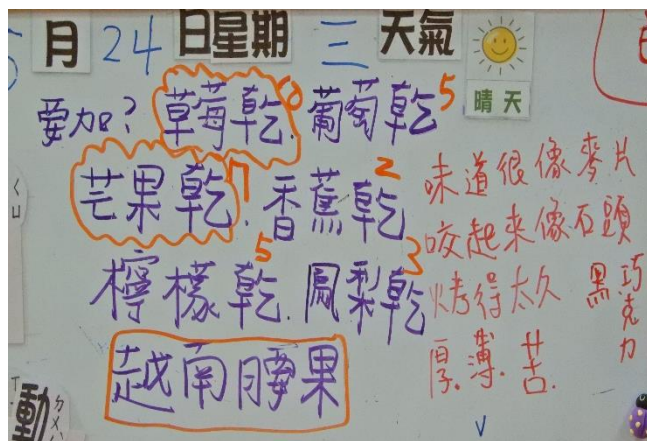 月 24 日星期 三 天氣
晴天
要加? 草莓乾. 葡萄乾 5
芒果乾 7. 香蕉乾 2
檸檬乾 5. 鳳梨乾 3
越南腰果
味道很像麥片
咬起來像石頭
烤得太久
厚. 薄. 苦.
黑巧克力
ㄑㄩ
動